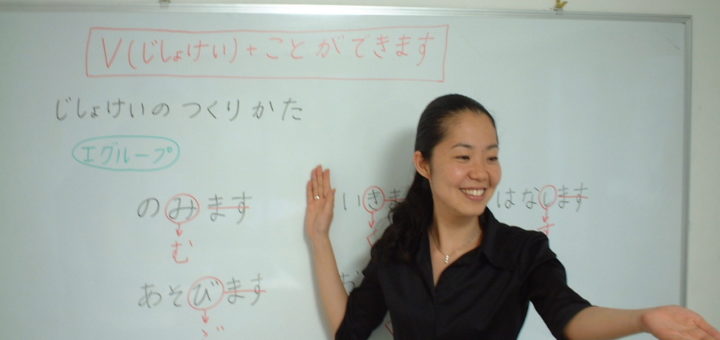 V(じしょけい)+ことができます
じしょけいのつくりかた
Iグループ
のみます いきま はなします
む す
あそびます
ぶ